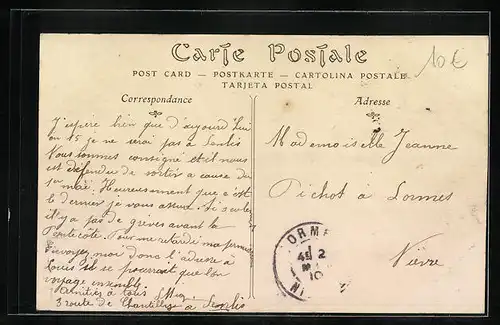 10€
Carte Postale
POST CARD — POSTKARTE — CARTOLINA POSTALE
TARJETA POSTAL
Correspondance
J'espère bien que d'aujourd'hui
en 15 je ne serai pas à Senlis
Nous sommes consigné et il nous
est défendu de sortir a cause du
1er mai. Heureusement que c'est
le dernier je vous assure. Si
il y a pas de grèves avant la
Pentecôte. Pour me
Envoyez moi donc l'adresse à
Louis il se pourrait que l'on
voyage ensemble
Amitiés à tous
3 route de Chantilly à Senlis
Adresse
Mademoiselle Jeanne
Pichot à Lormes
Nièvre
ORME
10